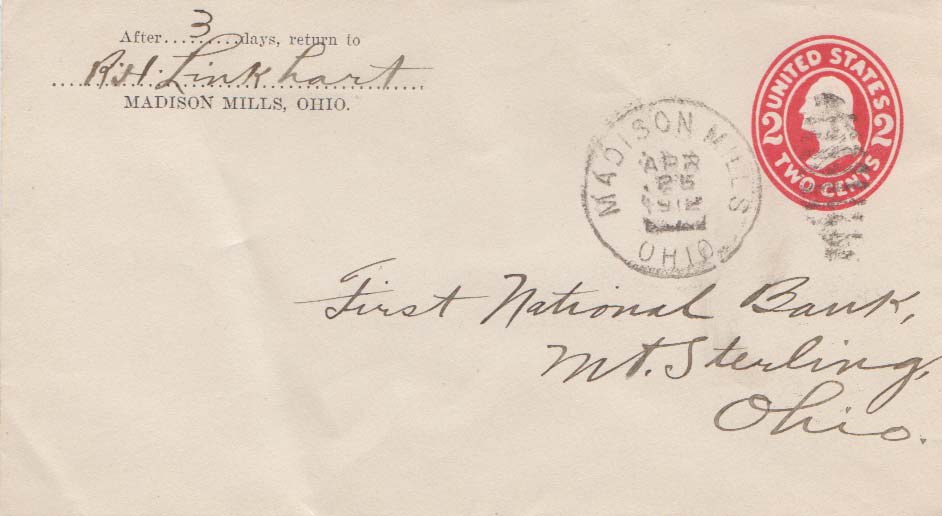 After 3 days, return to
R. H. Linkhart
MADISON MILLS, OHIO.
UNITED STATES
2 2
TWO CENTS
MADISON MILLS
APR
25
1912
OHIO
First National Bank,
Mt. Sterling,
Ohio.